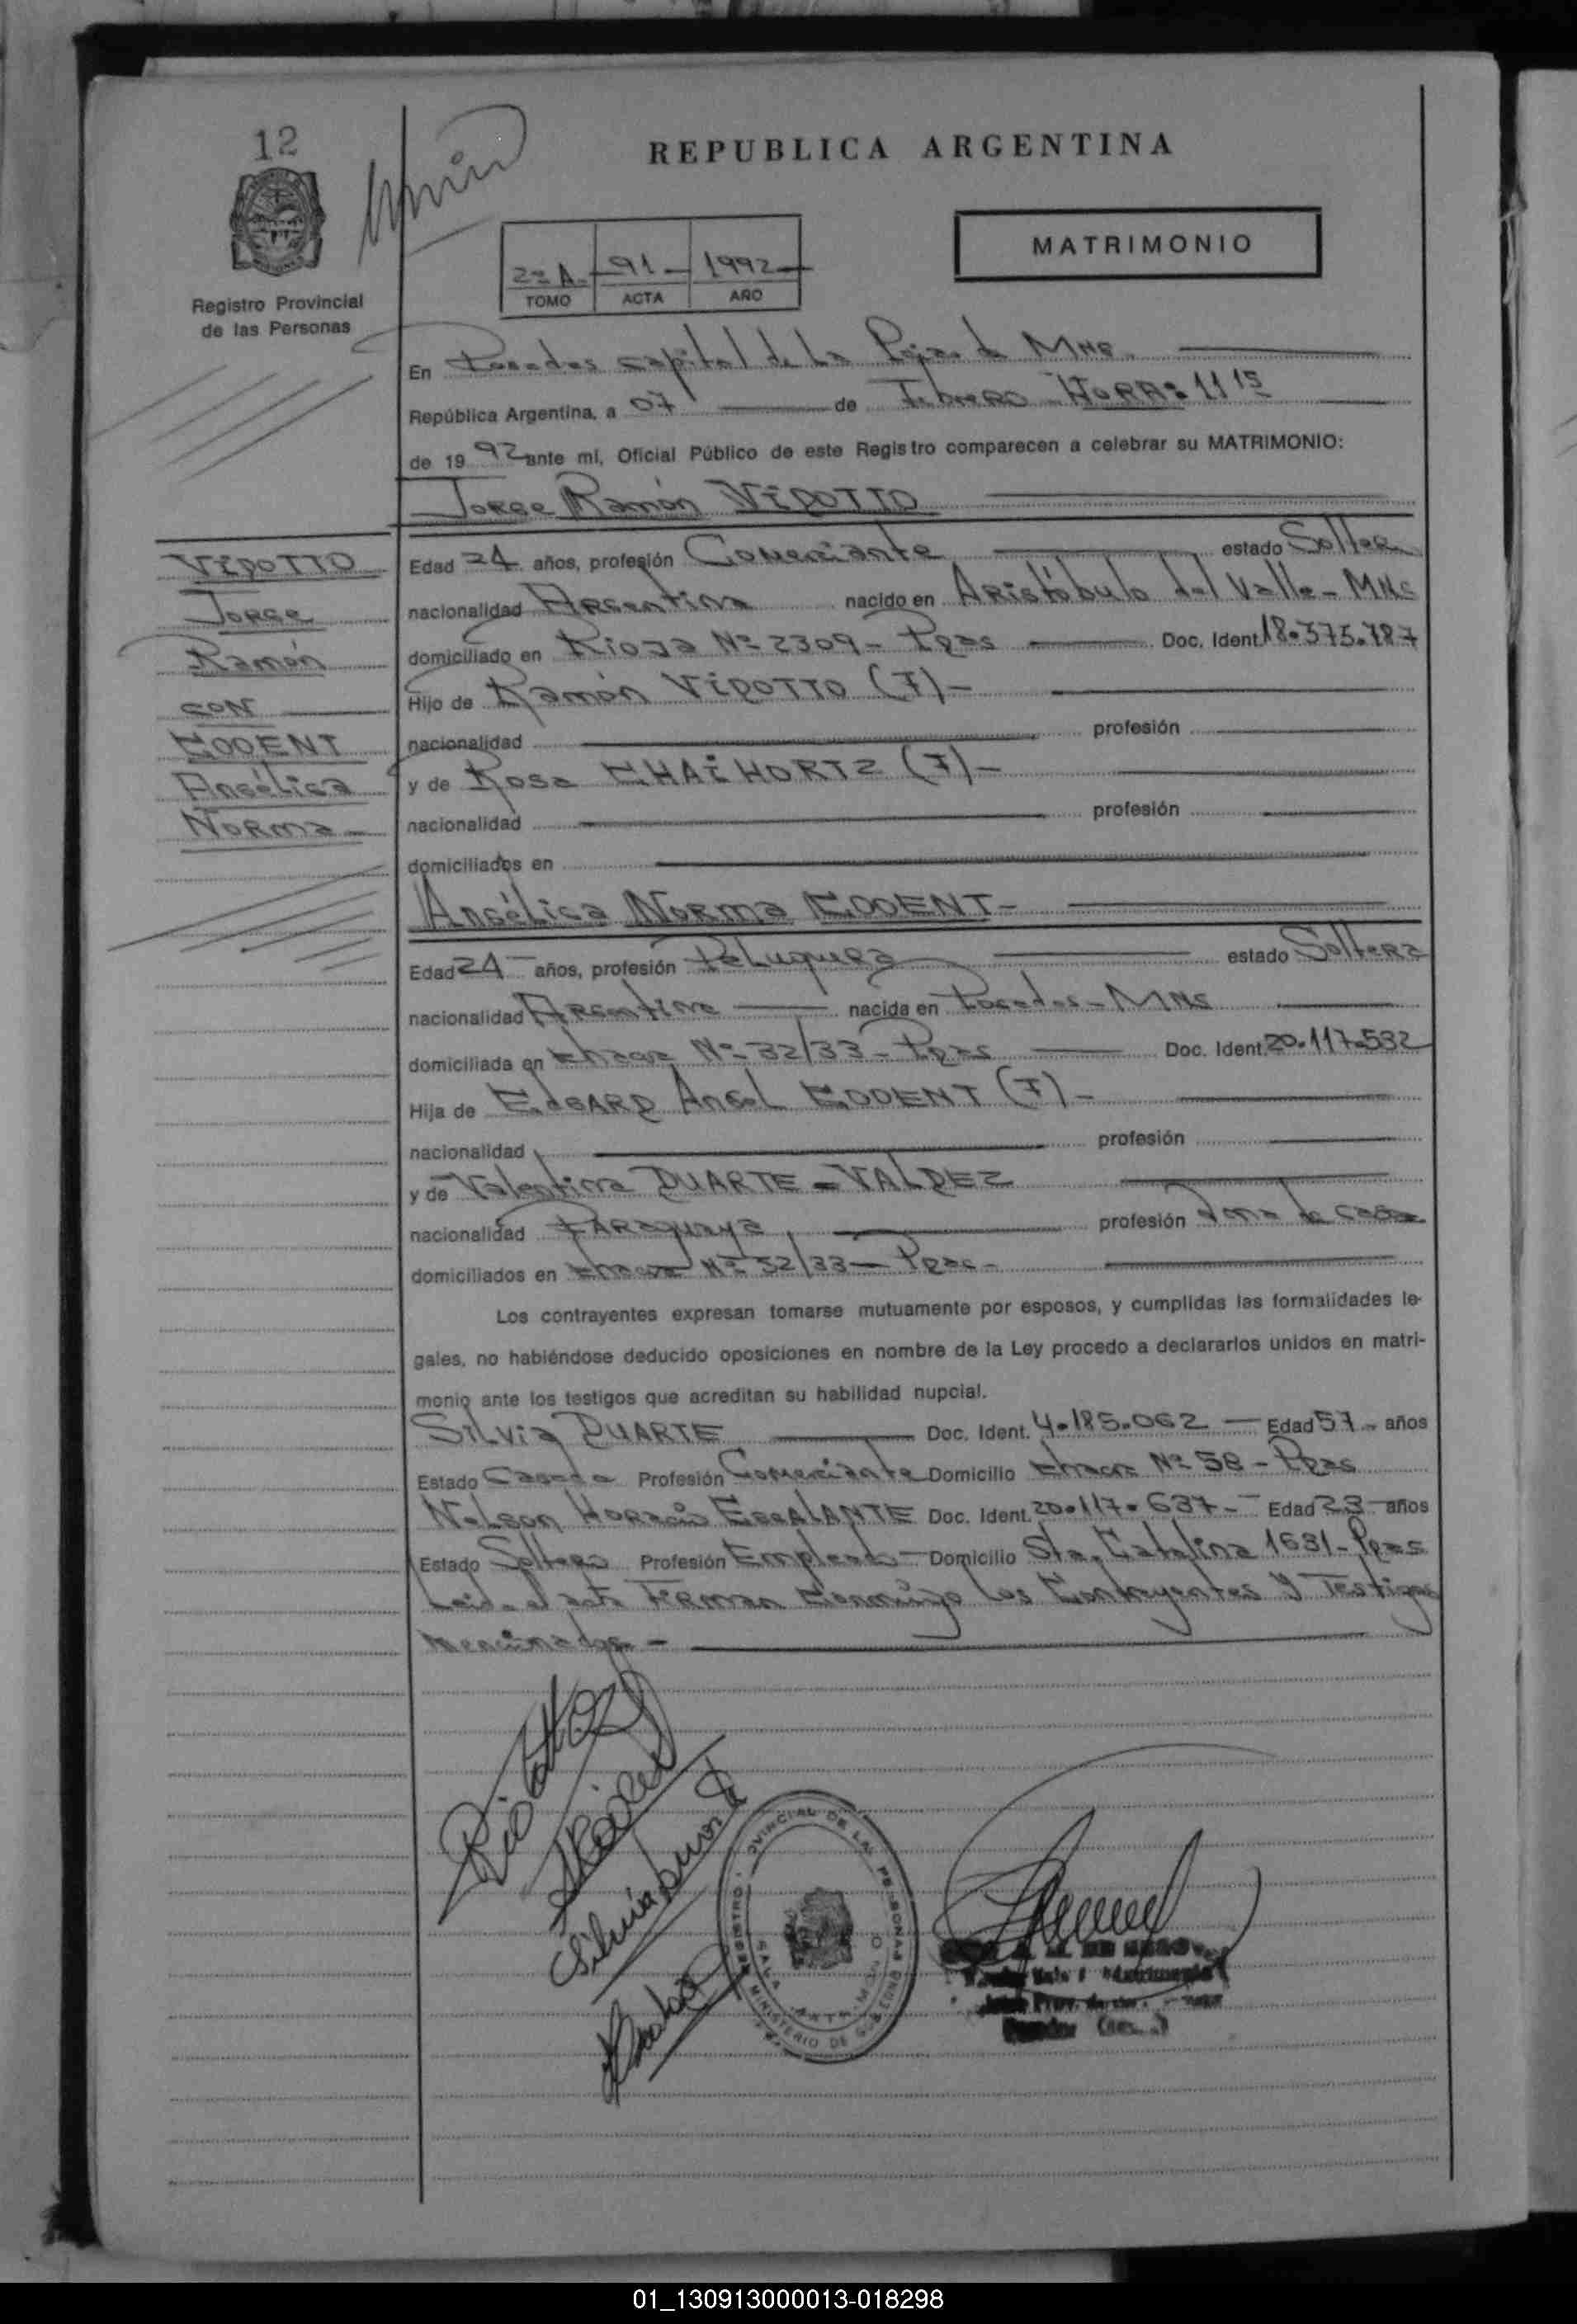 12
REPUBLICA ARGENTINA
MATRIMONIO
2º A - 91 - 1992
TOMO ACTA AÑO
Registro Provincial
de las Personas
En Posadas capital de La Pcia. de Mnes
República Argentina, a 07 de Febrero HORA: 11 15
de 1992 ante mí, Oficial Público de este Registro comparecen a celebrar su MATRIMONIO:
Jorge Ramón VIDOTTO
VIDOTTO
Jorge
Ramón
CON
CODENT
Angélica
Norma
Edad 24 años, profesión Comerciante estado Solter
nacionalidad Argentina nacido en Aristóbulo del Valle - Mnes
domiciliado en Rioja Nº 2309 - Pdas Doc. Ident. 18.375.787
Hijo de Ramón VIDOTTO (F) -
nacionalidad profesión
y de Rosa (F) -
nacionalidad profesión
domiciliados en
Angélica Norma CODENT -
Edad 24 años, profesión Peluquera estado Soltera
nacionalidad Argentina nacida en Posadas - Mnes
domiciliada en chacra Nº 32/33 - Pdas Doc. Ident. 20.117.532
Hija de Edgard Angel CODENT (F) -
nacionalidad profesión
y de Valentina DUARTE = VALDEZ
nacionalidad Paraguaya profesión Ama de casa
domiciliados en chacra Nº 32/33 - Pdas -
Los contrayentes expresan tomarse mutuamente por esposos, y cumplidas las formalidades le-
gales, no habiéndose deducido oposiciones en nombre de la Ley procedo a declararlos unidos en matri-
monio ante los testigos que acreditan su habilidad nupcial.
Silvia DUARTE Doc. Ident. 4.185.062 - Edad 57 años
Estado Casada Profesión Comerciante Domicilio chacra Nº 58 - Pdas
Nelson Horacio ESCALANTE Doc. Ident. 20.117.637 - Edad 23 años
Estado Soltero Profesión Empleado - Domicilio Sta. Catalina 1631 - Pdas
Leida el acta Firman Conmigo los Contrayentes y Testigos
mencionados -
Silvia Duarte
REGISTRO PROVINCIAL DE LAS PERSONAS
MINISTERIO DE GOBIERNO
01_130913000013-018298